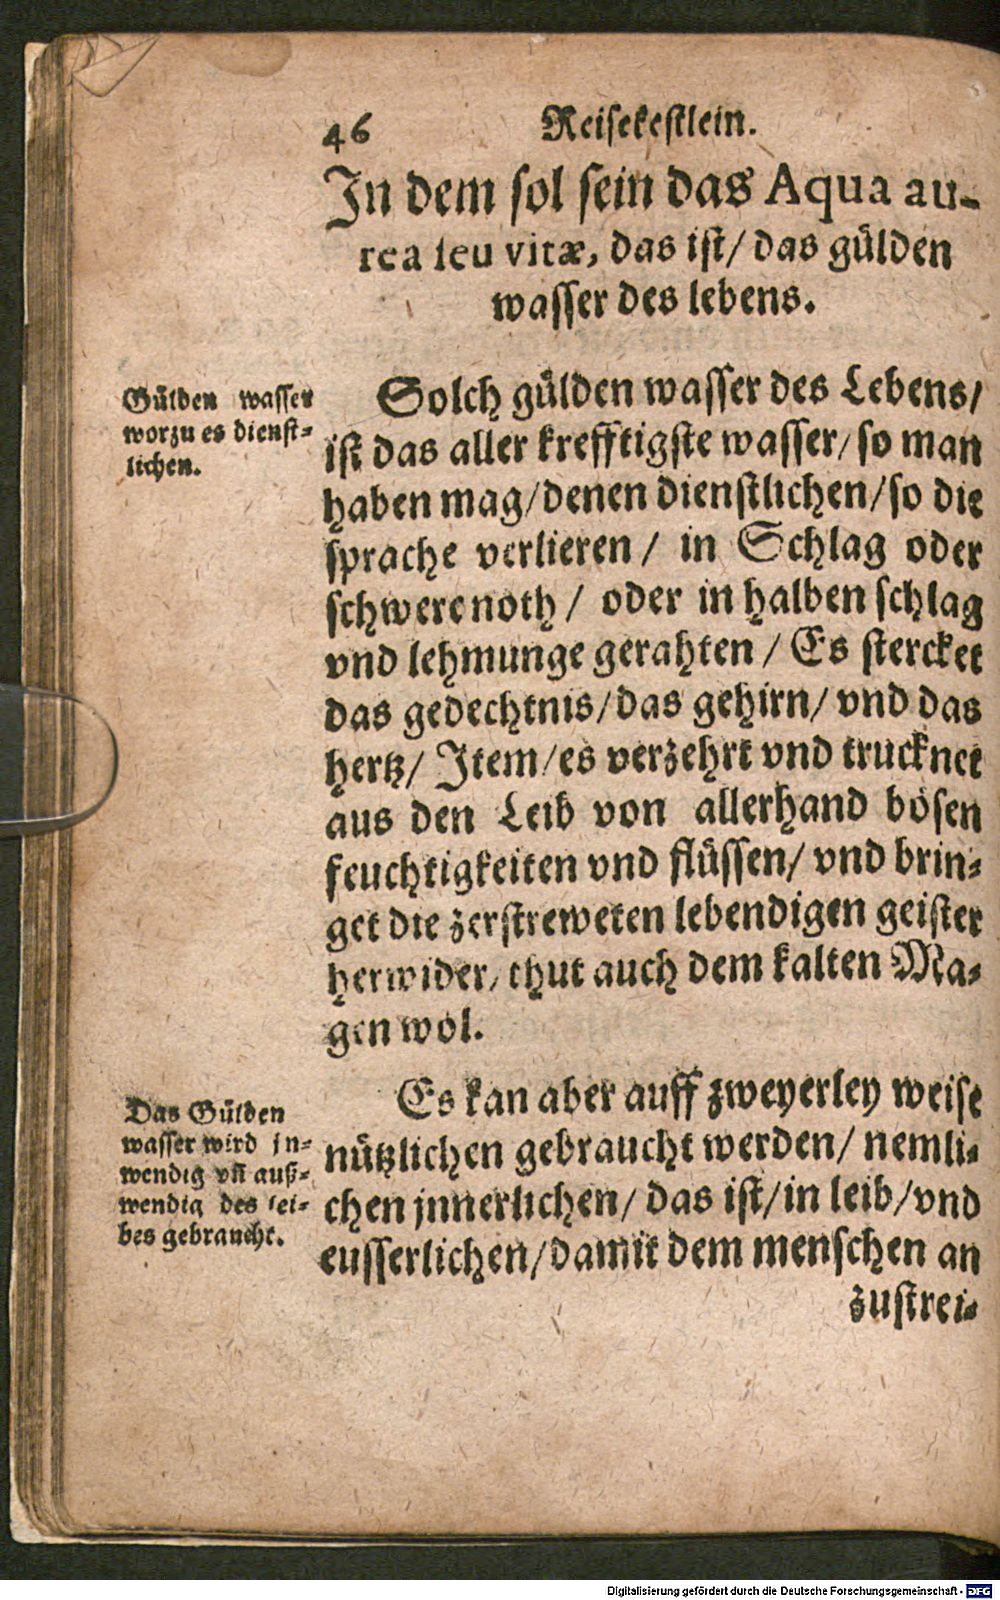 46 Reisekestlein.
In dem sol sein das Aqua au-
rea seu vitæ, das ist/ das gülden
wasser des lebens.
Gülden wasser
worzu es dienst-
lichen.
Solch gülden wasser des Lebens/
ist das aller krefftigste wasser/ so man
haben mag/ denen dienstlichen/ so die
sprache verlieren / in Schlag oder
schwerenoth / oder in halben schlag
vnd lehmunge gerahten / Es stercket
das gedechtnis/ das gehirn/ vnd das
hertz/ Item/ es verzehrt vnd trucknet
aus den Leib von allerhand bösen
feuchtigkeiten vnd flüssen/ vnd brin-
get die zerstreweten lebendigen geister
herwider/ thut auch dem kalten Ma-
gen wol.
Das Gülden
wasser wird jn-
wendig vñ auß-
wendig des lei-
bes gebraucht.
Es kan aber auff zweyerley weise
nützlichen gebraucht werden/ nemli-
chen jnnerlichen/ das ist/ in leib/ vnd
eusserlichen/ damit dem menschen an
zustrei-
Digitalisierung gefördert durch die Deutsche Forschungsgemeinschaft - DFG